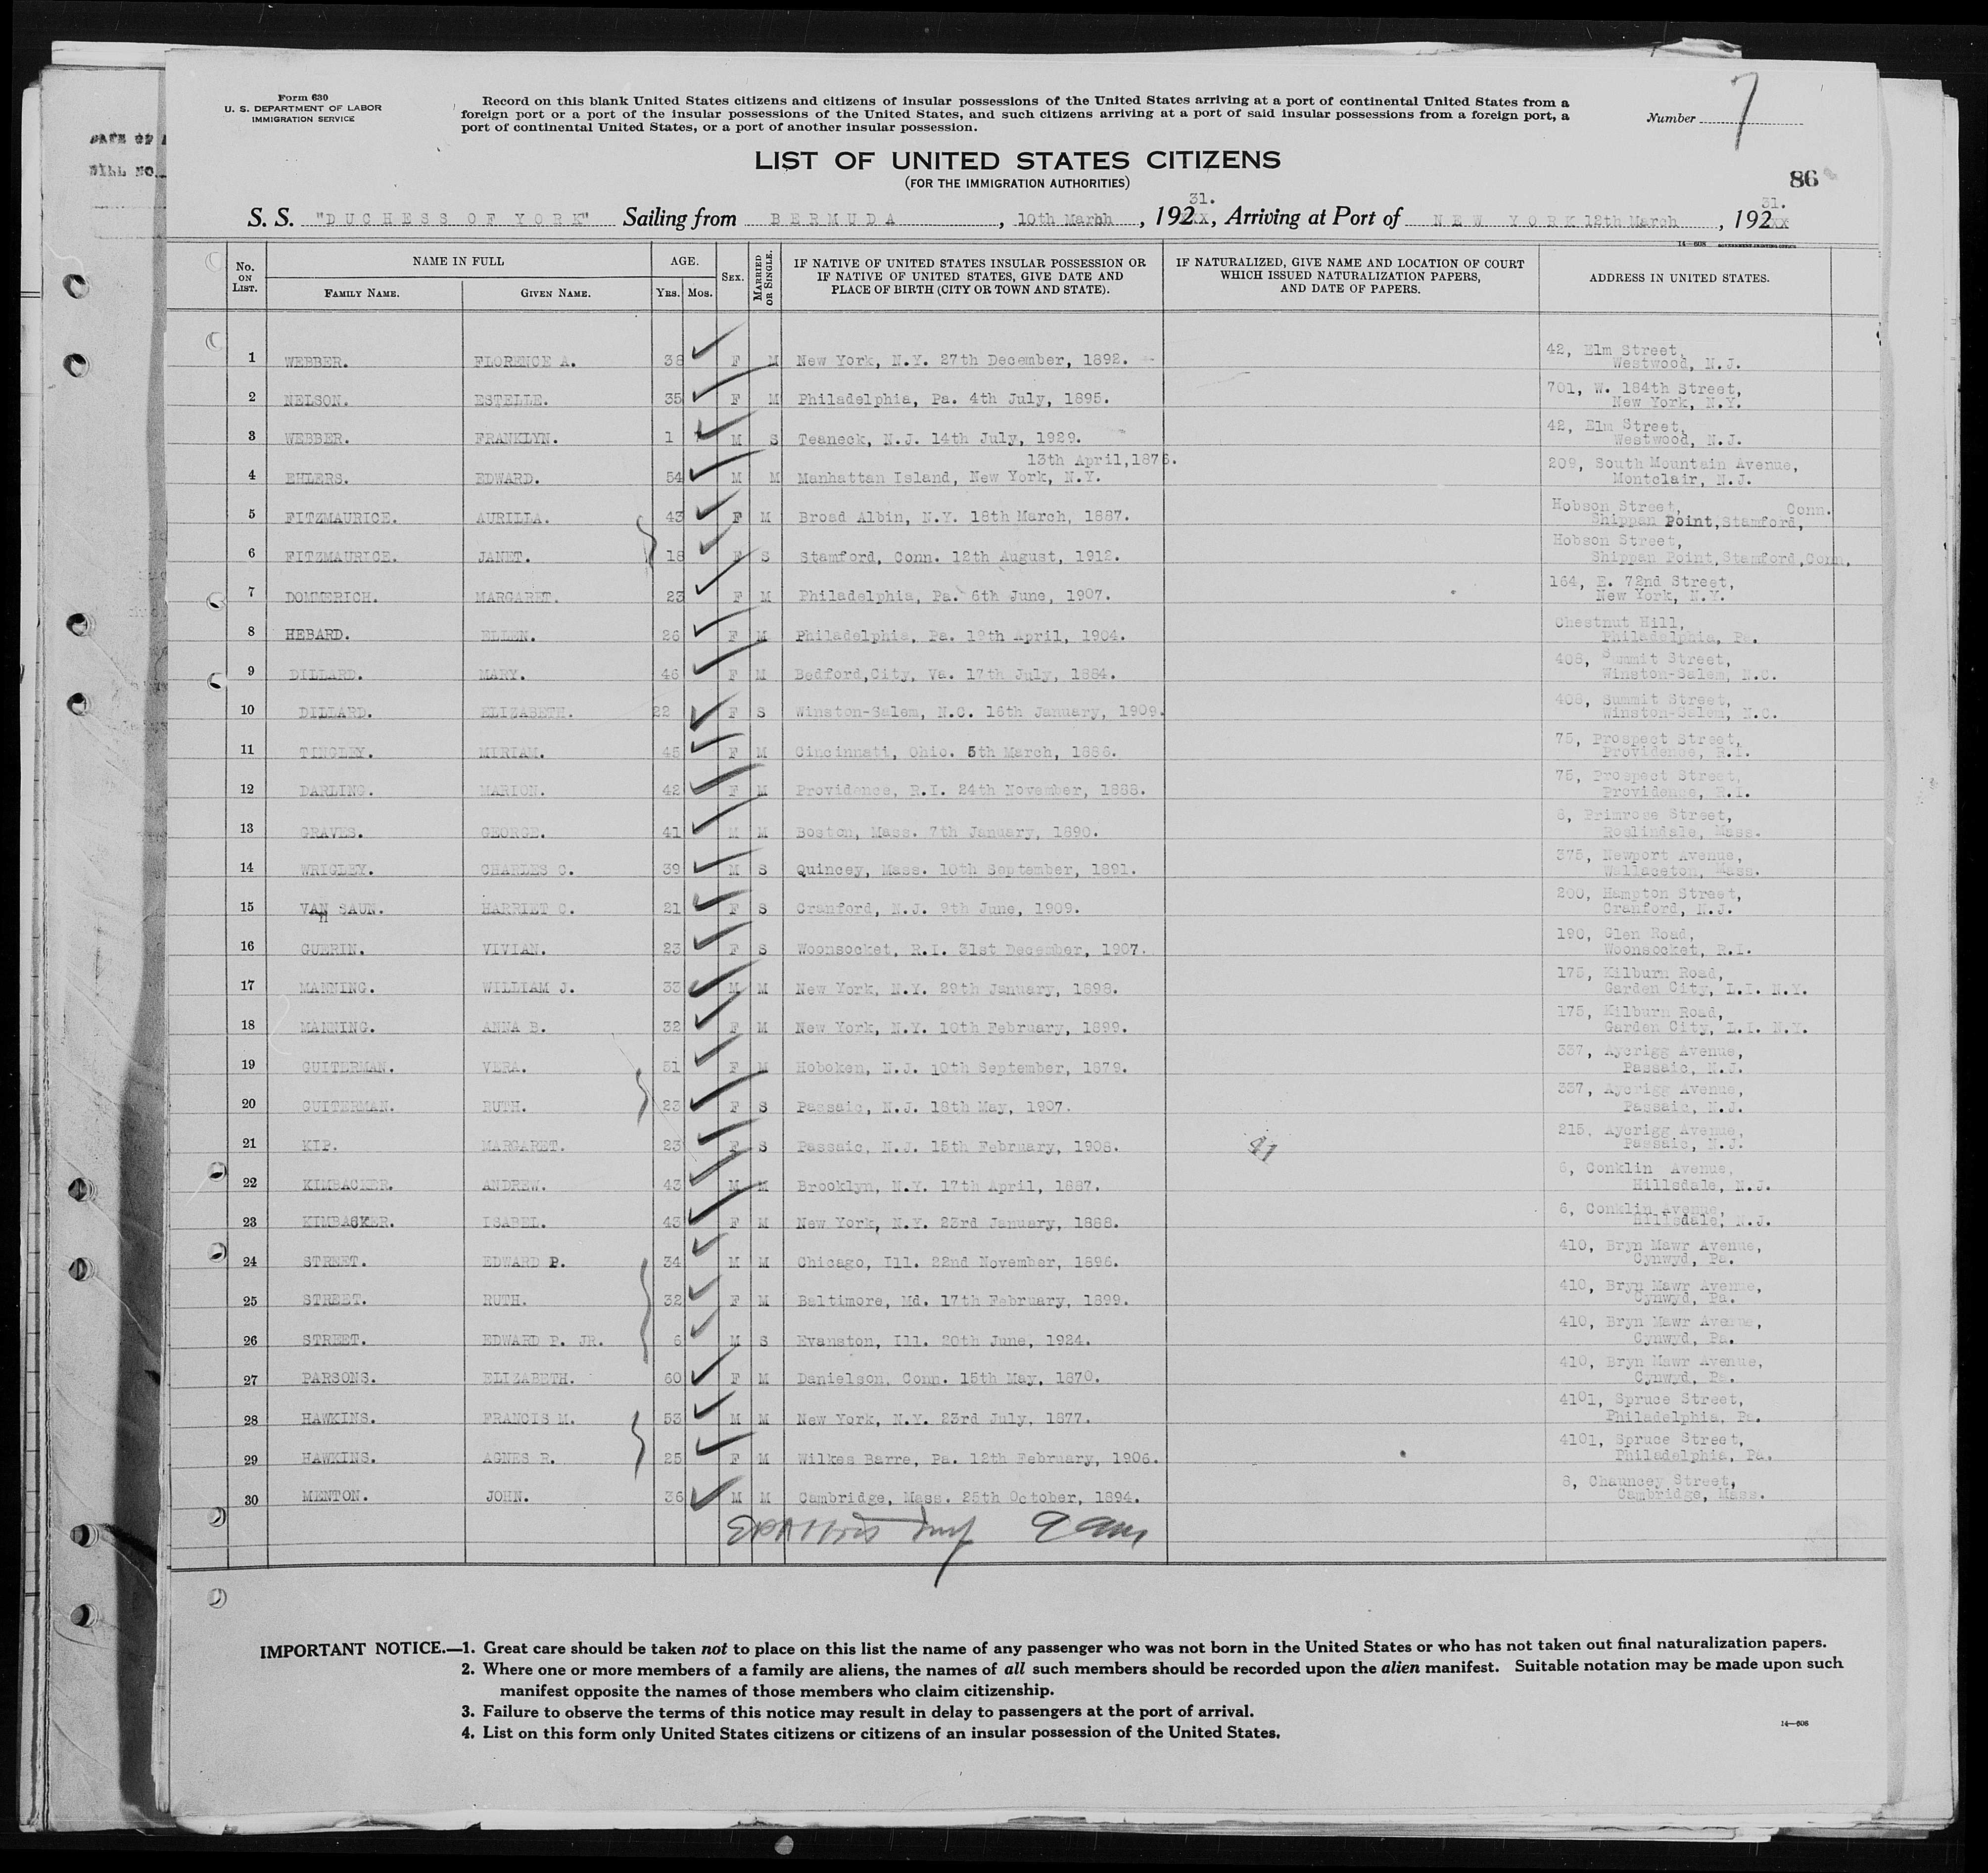 Form 630
U. S. DEPARTMENT OF LABOR
IMMIGRATION SERVICE
Record on this blank United States citizens and citizens of insular possessions of the United States arriving at a port of continental United States from a
foreign port or a port of the insular possessions of the United States, and such citizens arriving at a port of said insular possessions from a foreign port, a
port of continental United States, or a port of another insular possession.
Number 7
LIST OF UNITED STATES CITIZENS
(FOR THE IMMIGRATION AUTHORITIES)
86
S. S. "DUCHESS OF YORK" Sailing from BERMUDA, 10th March, 192xx 31., Arriving at Port of NEW YORK 12th March, 192xx 31.
14—608 GOVERNMENT PRINTING OFFICE
No. ON LIST. NAME IN FULL FAMILY NAME. GIVEN NAME. AGE. YRS. MOS. SEX. MARRIED OR SINGLE. IF NATIVE OF UNITED STATES INSULAR POSSESSION OR IF NATIVE OF UNITED STATES, GIVE DATE AND PLACE OF BIRTH (CITY OR TOWN AND STATE). IF NATURALIZED, GIVE NAME AND LOCATION OF COURT WHICH ISSUED NATURALIZATION PAPERS, AND DATE OF PAPERS. ADDRESS IN UNITED STATES.
1 WEBBER. FLORENCE A. 38 F M New York, N.Y. 27th December, 1892. 42, Elm Street, Westwood, N.J.
2 NELSON. ESTELLE. 35 F M Philadelphia, Pa. 4th July, 1895. 701, W. 184th Street, New York, N.Y.
3 WEBBER. FRANKLYN. 1 M S Teaneck, N.J. 14th July, 1929. 42, Elm Street, Westwood, N.J.
4 EHLERS. EDWARD. 54 M M Manhattan Island, New York, N.Y. 13th April, 1876. 209, South Mountain Avenue, Montclair, N.J.
5 FITZMAURICE. AURILLA. 43 F M Broad Albin, N.Y. 18th March, 1887. Hobson Street, Shippan Point, Stamford, Conn.
6 FITZMAURICE. JANET. 18 F S Stamford, Conn. 12th August, 1912. Hobson Street, Shippan Point, Stamford, Conn.
7 DOMMERICH. MARGARET. 23 F M Philadelphia, Pa. 6th June, 1907. 164, E. 72nd Street, New York, N.Y.
8 HEBARD. ELLEN. 26 F M Philadelphia, Pa. 19th April, 1904. Chestnut Hill, Philadelphia, Pa.
9 DILLARD. MARY. 46 F M Bedford,City, Va. 17th July, 1884. 408, Summit Street, Winston-Salem, N.C.
10 DILLARD. ELIZABETH. 22 F S Winston-Salem, N.C. 16th January, 1909. 408, Summit Street, Winston-Salem, N.C.
11 TINGLEY. MIRIAM. 45 F M Cincinnati, Ohio. 5th March, 1886. 75, Prospect Street, Providence, R.I.
12 DARLING. MARION. 42 F M Providence, R.I. 24th November, 1888. 75, Prospect Street, Providence, R.I.
13 GRAVES. GEORGE. 41 M M Boston, Mass. 7th January, 1890. 8, Primrose Street, Roslindale, Mass.
14 WRIGLEY. CHARLES C. 39 M S Quincey, Mass. 10th September, 1891. 375, Newport Avenue, Wollaceton, Mass.
15 VAN SAUN. HARRIET C. 21 F S Cranford, N.J. 9th June, 1909. 200, Hampton Street, Cranford, N.J.
16 GUERIN. VIVIAN. 23 F S Woonsocket, R.I. 31st December, 1907. 190, Glen Road, Woonsocket, R.I.
17 MANNING. WILLIAM J. 33 M M New York, N.Y. 29th January, 1898. 175, Kilburn Road, Garden City, L.I. N.Y.
18 MANNING. ANNA B. 32 F M New York, N.Y. 10th February, 1899. 175, Kilburn Road, Garden City, L.I. N.Y.
19 GUITERMAN. VERA. 51 F M Hoboken, N.J. 10th September, 1879. 337, Aycrigg Avenue, Passaic, N.J.
20 GUITERMAN. RUTH. 23 F S Passaic, N.J. 18th May, 1907. 337, Aycrigg Avenue, Passaic, N.J.
21 KIP. MARGARET. 23 F S Passaic, N.J. 15th February, 1908. 215, Aycrigg Avenue, Passaic, N.J.
22 KIMBACKER. ANDREW. 43 M M Brooklyn, N.Y. 17th April, 1887. 6, Conklin Avenue, Hillsdale, N.J.
23 KIMBACKER. ISABEL. 43 F M New York, N.Y. 23rd January, 1888. 6, Conklin Avenue, Hillsdale, N.J.
24 STREET. EDWARD P. 34 M M Chicago, Ill. 22nd November, 1896. 410, Bryn Mawr Avenue, Cynwyd, Pa.
25 STREET. RUTH. 32 F M Baltimore, Md. 17th February, 1899. 410, Bryn Mawr Avenue, Cynwyd, Pa.
26 STREET. EDWARD P. JR. 6 M S Evanston, Ill. 20th June, 1924. 410, Bryn Mawr Avenue, Cynwyd, Pa.
27 PARSONS. ELIZABETH. 60 F M Danielson, Conn. 15th May, 1870. 410, Bryn Mawr Avenue, Cynwyd, Pa.
28 HAWKINS. FRANCIS M. 53 M M New York, N.Y. 23rd July, 1877. 4101, Spruce Street, Philadelphia, Pa.
29 HAWKINS. AGNES R. 25 F M Wilkes Barre, Pa. 12th February, 1906. 4101, Spruce Street, Philadelphia, Pa.
30 MENTON. JOHN. 36 M M Cambridge, Mass. 25th October, 1894. 8, Chauncey Street, Cambridge, Mass.
IMPORTANT NOTICE.—1. Great care should be taken not to place on this list the name of any passenger who was not born in the United States or who has not taken out final naturalization papers.
2. Where one or more members of a family are aliens, the names of all such members should be recorded upon the alien manifest. Suitable notation may be made upon such
manifest opposite the names of those members who claim citizenship.
3. Failure to observe the terms of this notice may result in delay to passengers at the port of arrival.
4. List on this form only United States citizens or citizens of an insular possession of the United States.
14—608